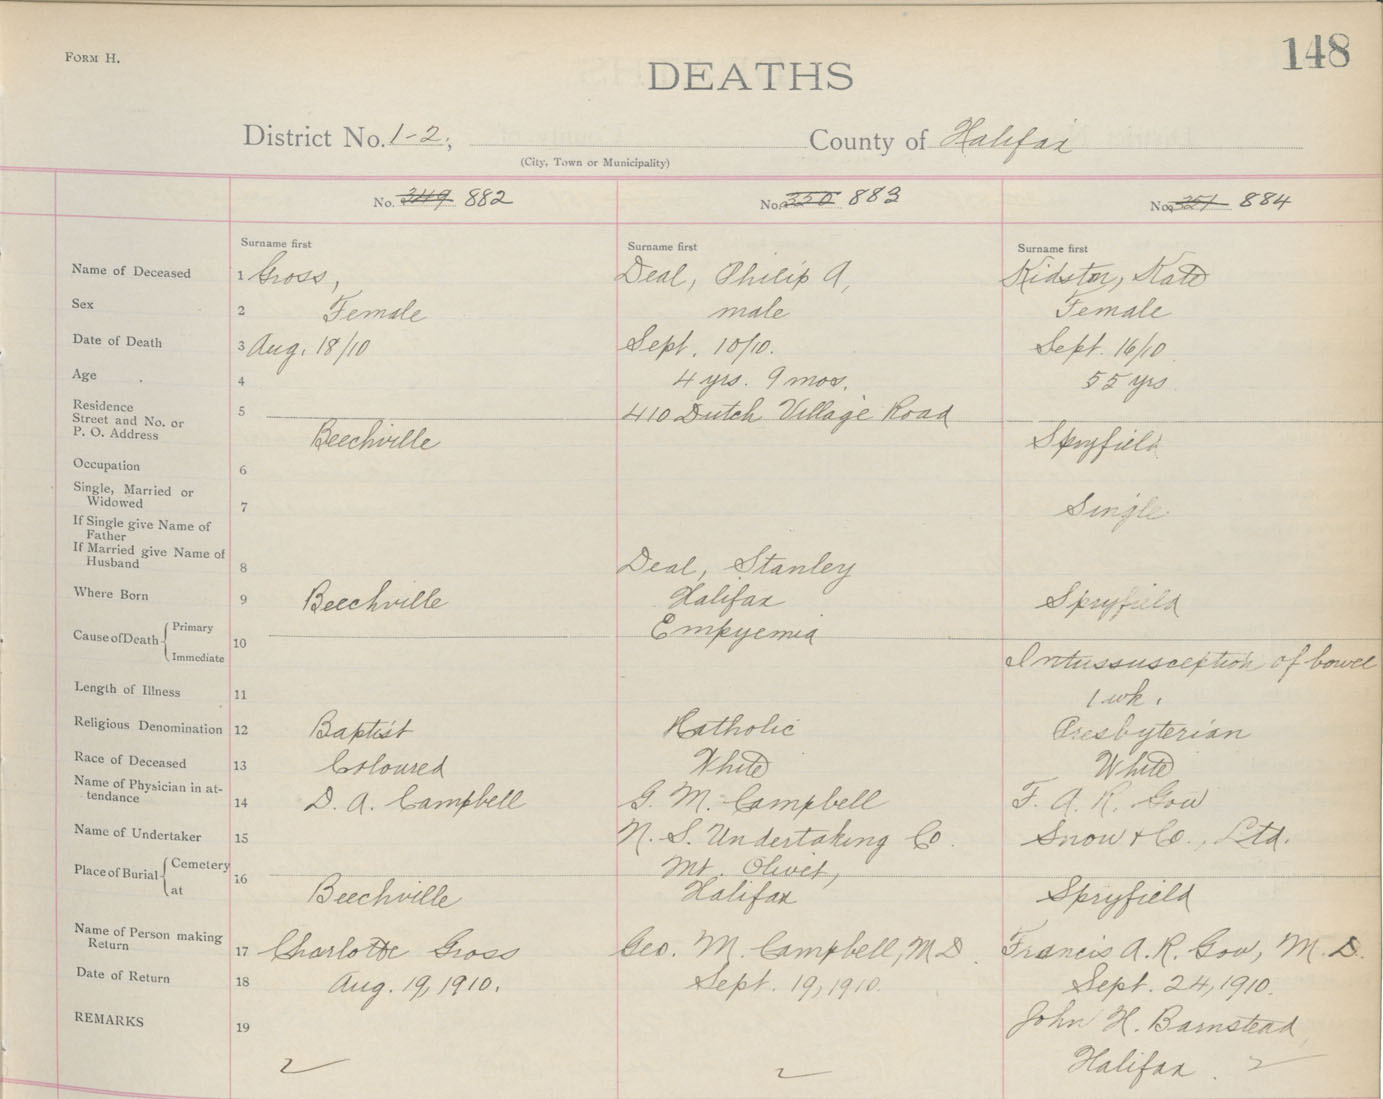 FORM H.
148
DEATHS
District No. 1-2, County of Halifax
(City, Town or Municipality)
No. 349 882 No. 350 883 No. 351 884
Surname first Surname first Surname first
Name of Deceased 1 Gross, Deal, Philip A, Kidston, Kate
Sex 2 Female male Female
Date of Death 3 Aug. 18/10 Sept. 10/10. Sept. 16/10
Age 4 4 yrs. 9 mos. 55 yrs
Residence
Street and No. or 5 410 Dutch Village Road
P. O. Address Beechville Spryfield
Occupation 6
Single, Married or
Widowed 7 Single
If Single give Name of
Father
If Married give Name of
Husband 8 Deal, Stanley
Where Born 9 Beechville Halifax Spryfield
Cause of Death Primary 10 Empyemia
Immediate Intussusception of bowel
Length of Illness 11 1 wk.
Religious Denomination 12 Baptist Katholic Presbyterian
Race of Deceased 13 Coloured White White
Name of Physician in at-
tendance 14 D. A. Campbell G. M. Campbell F. A. R. Gow
Name of Undertaker 15 N. S. Undertaking Co. Snow & Co., Ltd.
Place of Burial Cemetery 16 Mt. Olivet,
at Beechville Halifax Spryfield
Name of Person making
Return 17 Charlotte Gross Geo. M. Campbell, M D. Francis A. R. Gow, M. D.
Date of Return 18 Aug. 19, 1910. Sept. 19, 1910. Sept. 24, 1910.
REMARKS 19 John H. Barnstead,
Halifax.